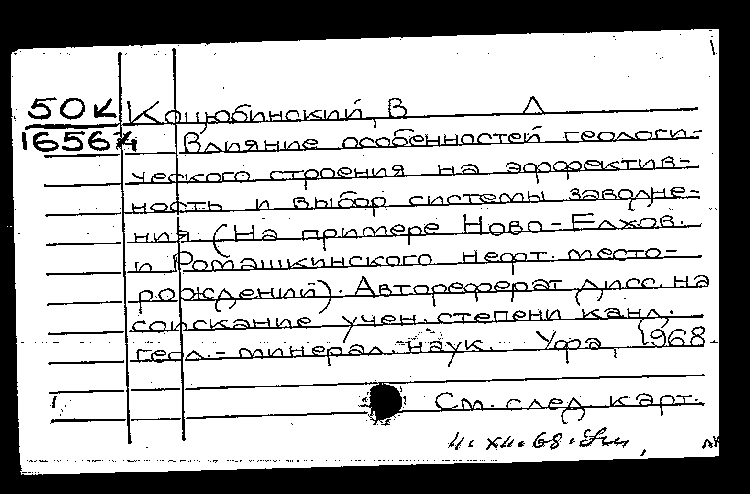 50К Коцюбинский, В Л
16564 Влияние особенностей геологи-
ческого строения на эффектив-
ность и выбор системы заводне-
ния (На примере Ново-Елхов.
и Ромашкинского нефт. место-
рождений). Автореферат дисс. на
соискание учен. степени канд.
геол.-минерал. наук. Уфа, 1968
1 См. след. карт.
4. XII. 68.